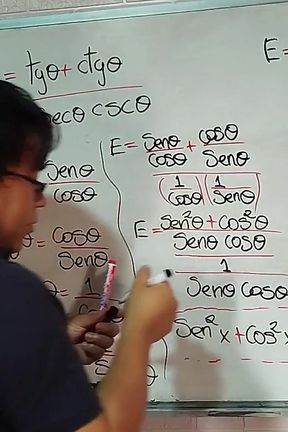 E=
= tgθ + ctgθ
secθ cscθ
Senθ
cosθ
= Cosθ
Senθ
= 1
E = Senθ + cosθ
cosθ Senθ
(1) (1)
cosθ Senθ
E = Sen²θ + cos²θ
Senθ cosθ
1
Senθ Cosθ
Sen²x + Cos²x